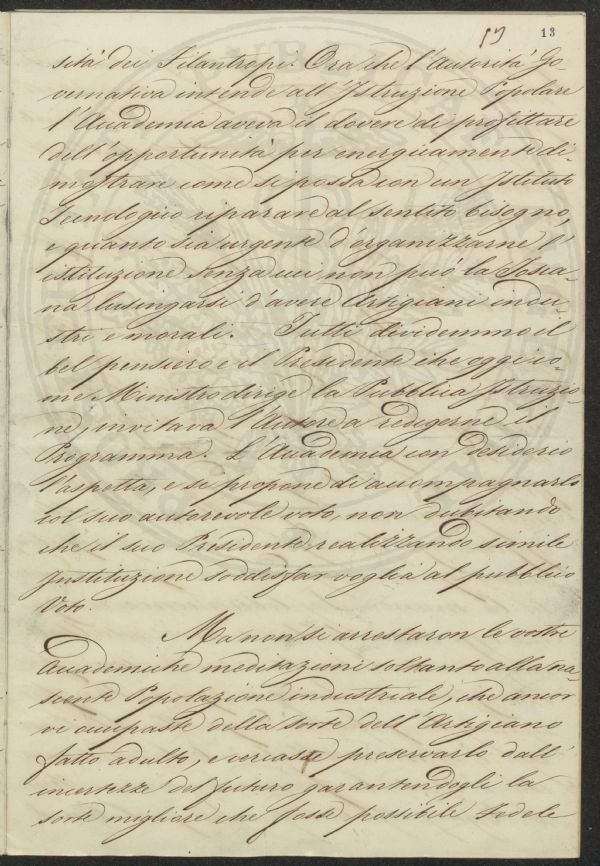 13 13
sità dei Filantropi. Ora che l'Autorità Go-
vernativa intende all'Istruzione Popolare
l'Accademia aveva il dovere di profittare
dell'opportunità per energicamente di-
mostrare come si possa con un Istituto
Tecnologico riparare al sentito bisogno,
e quanto sia urgente d'organizzarne l'
istituzione senza cui non può la Tosca-
na lusingarsi d'avere Artigiani indu-
stri e morali. Tutti dividemmo il
bel pensiero e il Presidente che oggi co-
me Ministro dirige la Pubblica Istruzio-
ne, invitava l'Autore a redigerne il
Programma. L'Accademia con desiderio
l'aspetta, e si propone di accompagnarlo
col suo autorevole voto, non dubitando
che il suo Presidente realizzando simile
Instituzione soddisfar voglia al pubblico
Voto.
Ma non si arrestaron le vostre
Accademiche meditazioni soltanto alla na-
scente Popolazione industriale, che ancor
vi occupaste della sorte dell'Artigiano
fatto adulto, e cercaste preservarlo dall'
incertezze del futuro garantendogli la
sorte migliore che fosse possibile. Fedele